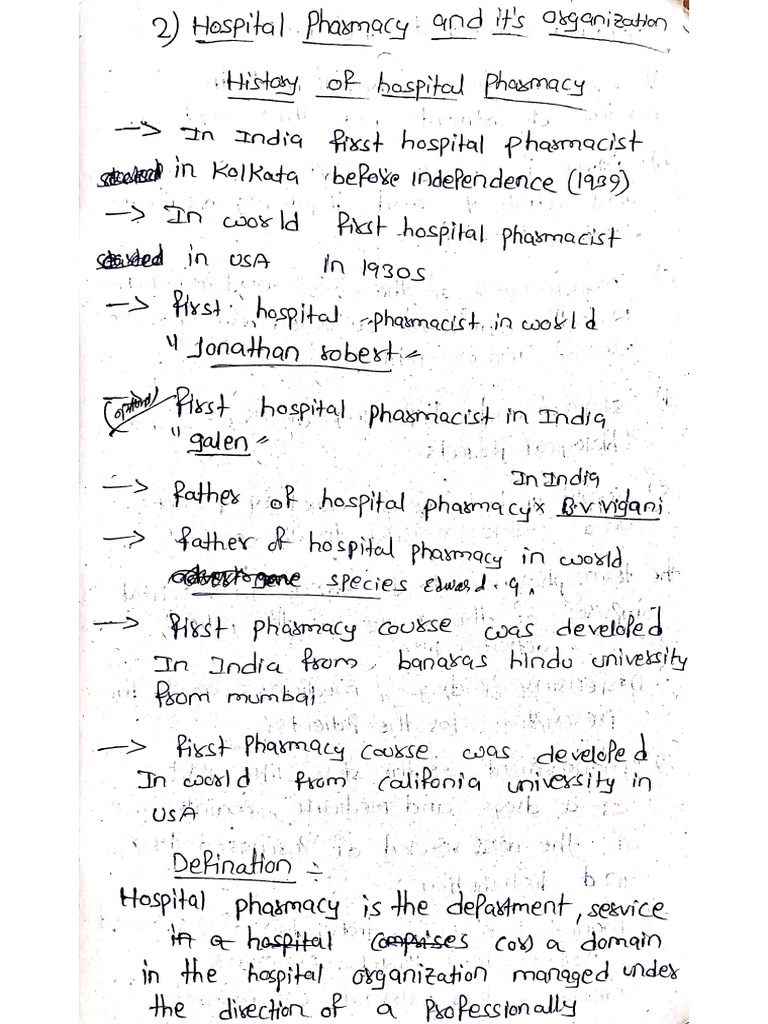 2) Hospital Pharmacy and it's organization
History of hospital Pharmacy
–> In India first hospital pharmacist
in Kolkata before independence (1939)
–> In world first hospital pharmacist
in USA in 1930s
–> first hospital pharmacist in world
"Jonathan robert"
first hospital pharmacist in India
"galen"
In India
–> father of hospital pharmacy x B.v.vigani
–> father of hospital pharmacy in world
species Edward . g.
–> first pharmacy course was developed
In India from banaras hindu university
from mumbai
–> first Pharmacy course was develofed
In world from califonia university in
USA
Defination :-
Hospital pharmacy is the department, service
in a hospital comprises (or) a domain
in the hospital organization managed under
the direction of a professionally